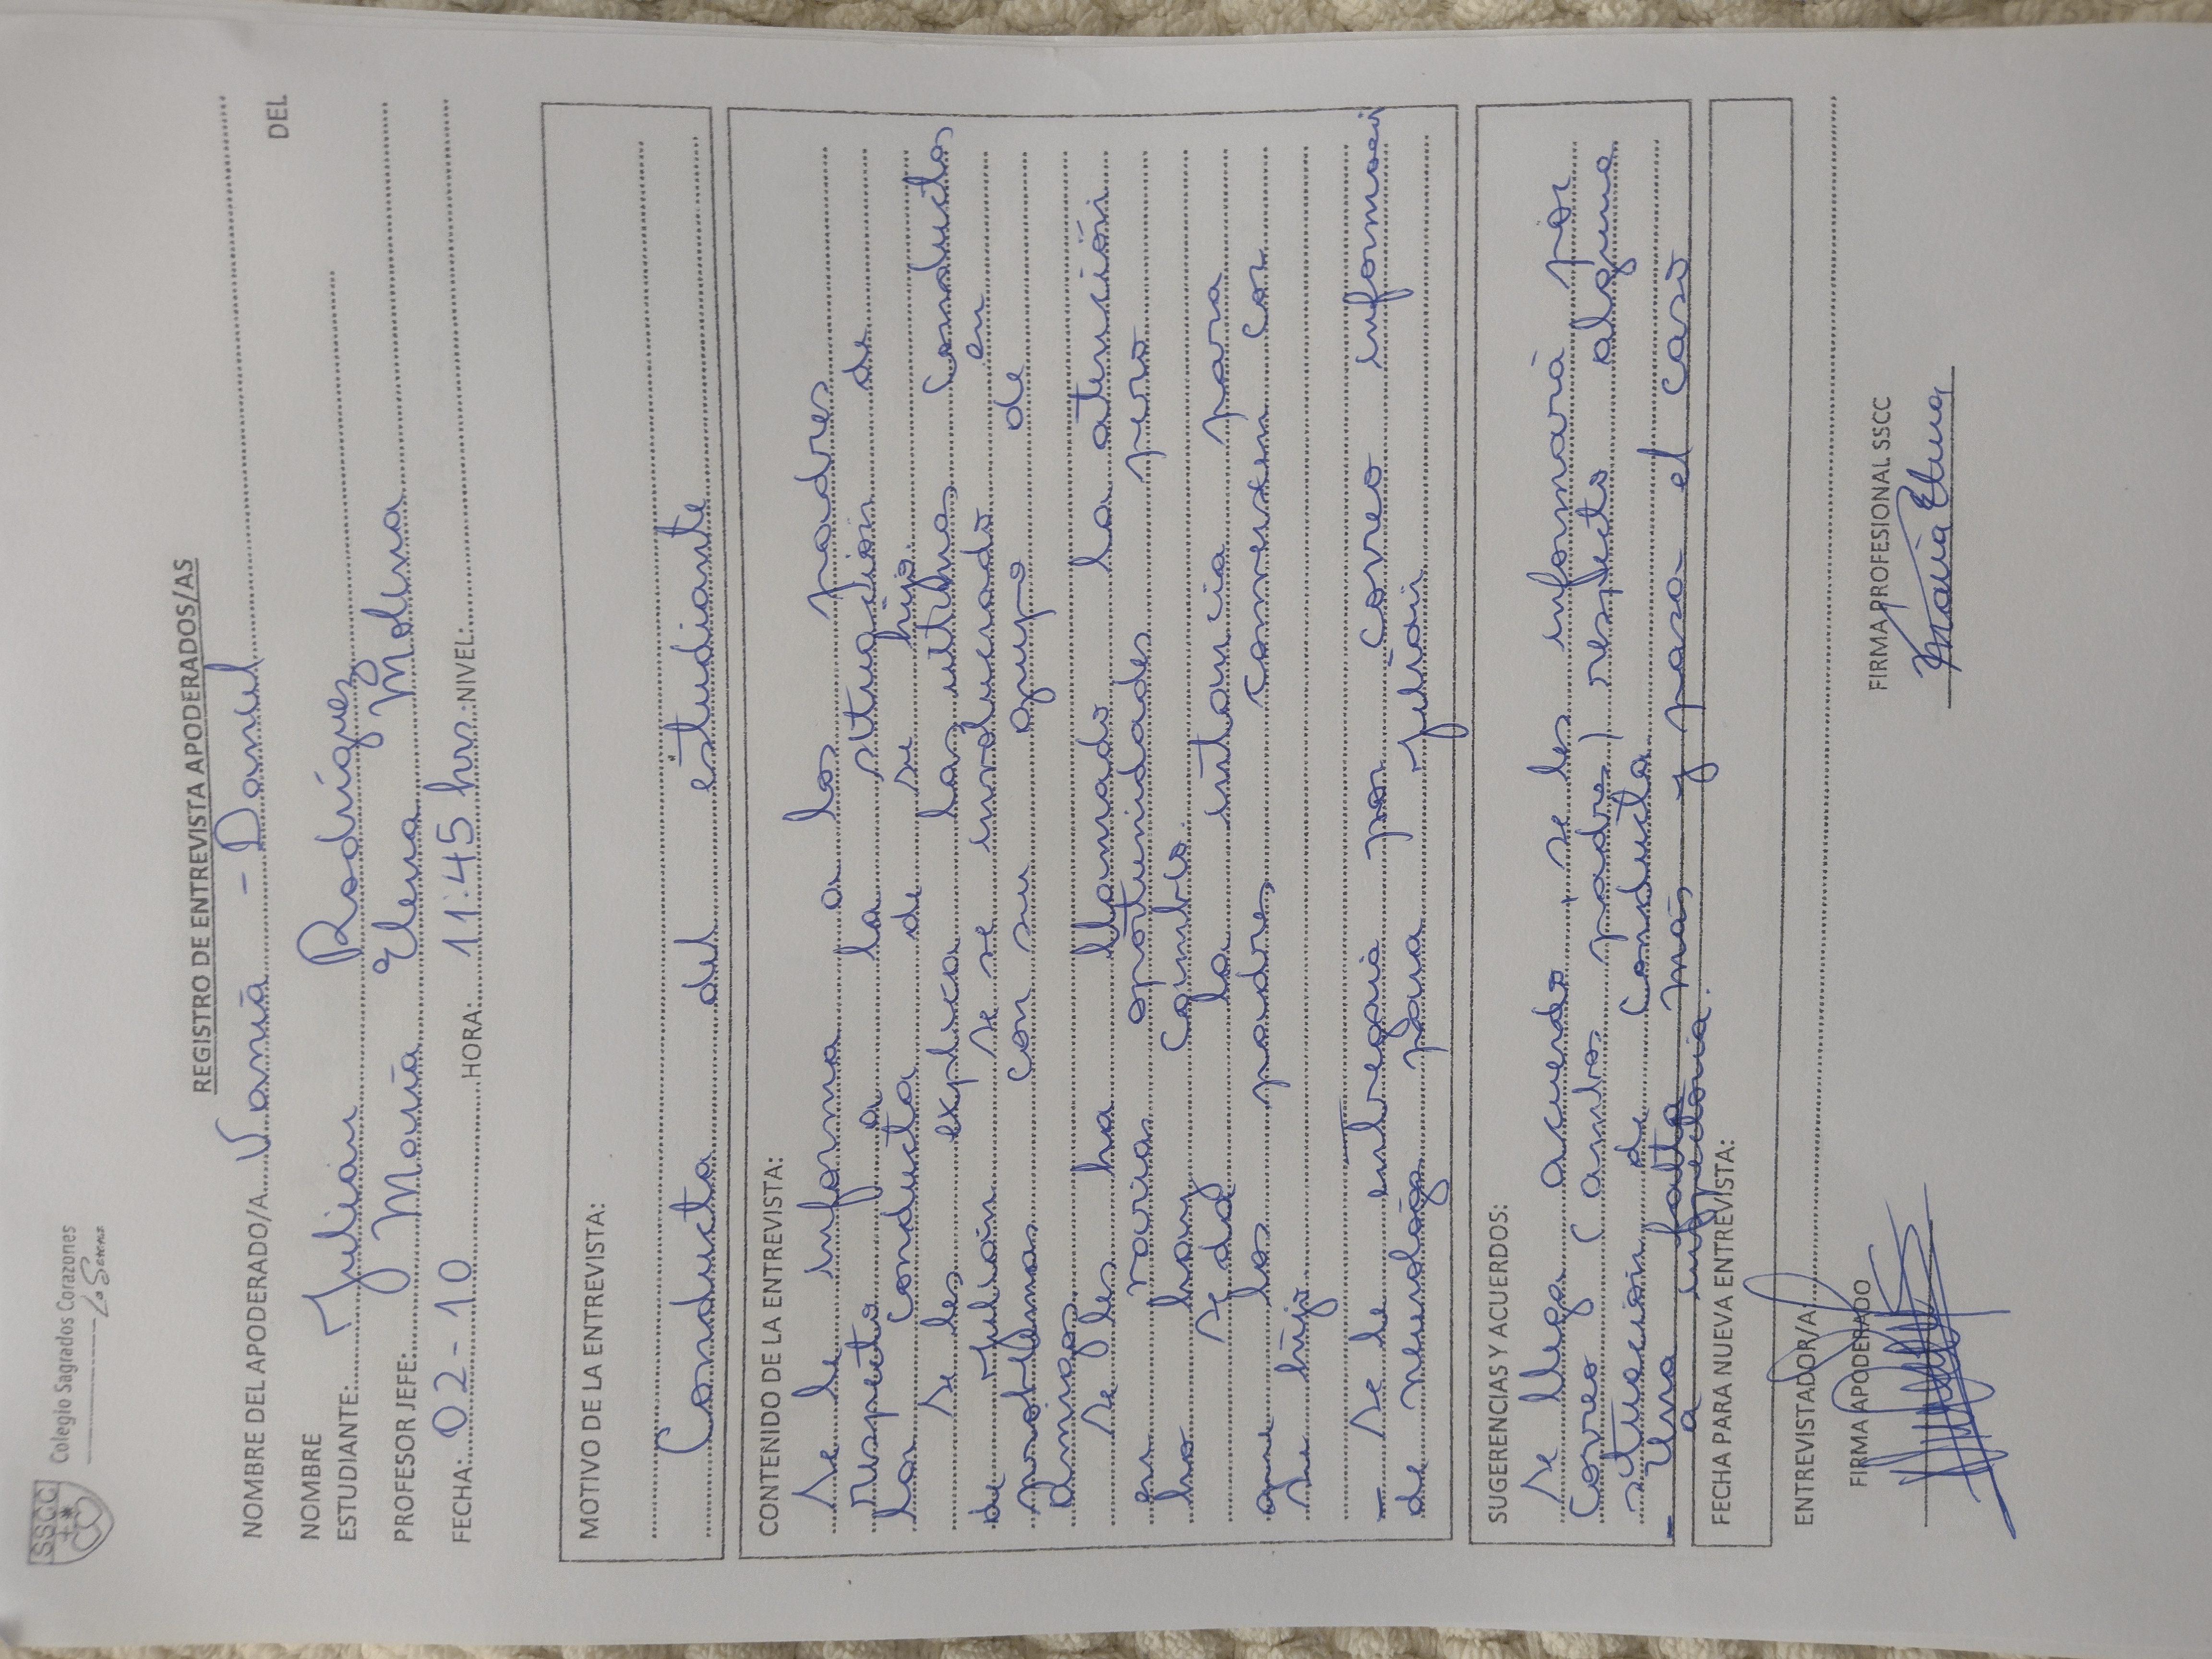 SSCC
Colegio Sagrados Corazones
La Serena
REGISTRO DE ENTREVISTA APODERADOS/AS
NOMBRE DEL APODERADO/A Vamia - Daniel
NOMBRE DEL
ESTUDIANTE: Julian Rodríguez
PROFESOR JEFE: María Elena Molina
FECHA: 02-10 HORA: 11:45 hrs. NIVEL:
MOTIVO DE LA ENTREVISTA:
Conducta del estudiante
CONTENIDO DE LA ENTREVISTA:
Se le informa a los padres
respecto a la situación de
las conducta de su hijo.
Se les explica las ultimas conductas
de Julián se se involucrado en
problemas con su grupo de
amigos.
Se les ha llamado la atención
en varias oportunidades pero
no hay cambio.
Se da la instancia para
que los padres conversen con
su hijo.
- Se le entregaia por correo informaci
de neurologo para Julián
SUGERENCIAS Y ACUERDOS:
Se llega acuerdo + se les informará por
correo (ambos padres) respecto alguna
situación de conducta
- Una falta más y pasa el caso
a inspectoria.
FECHA PARA NUEVA ENTREVISTA:
ENTREVISTADOR/A
FIRMA APODERADO FIRMA PROFESIONAL SSCC
María Elena